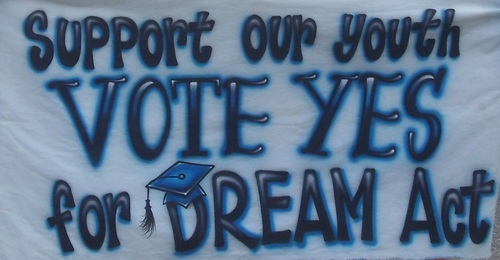 Support our youth
VOTE YES
for DREAM Act